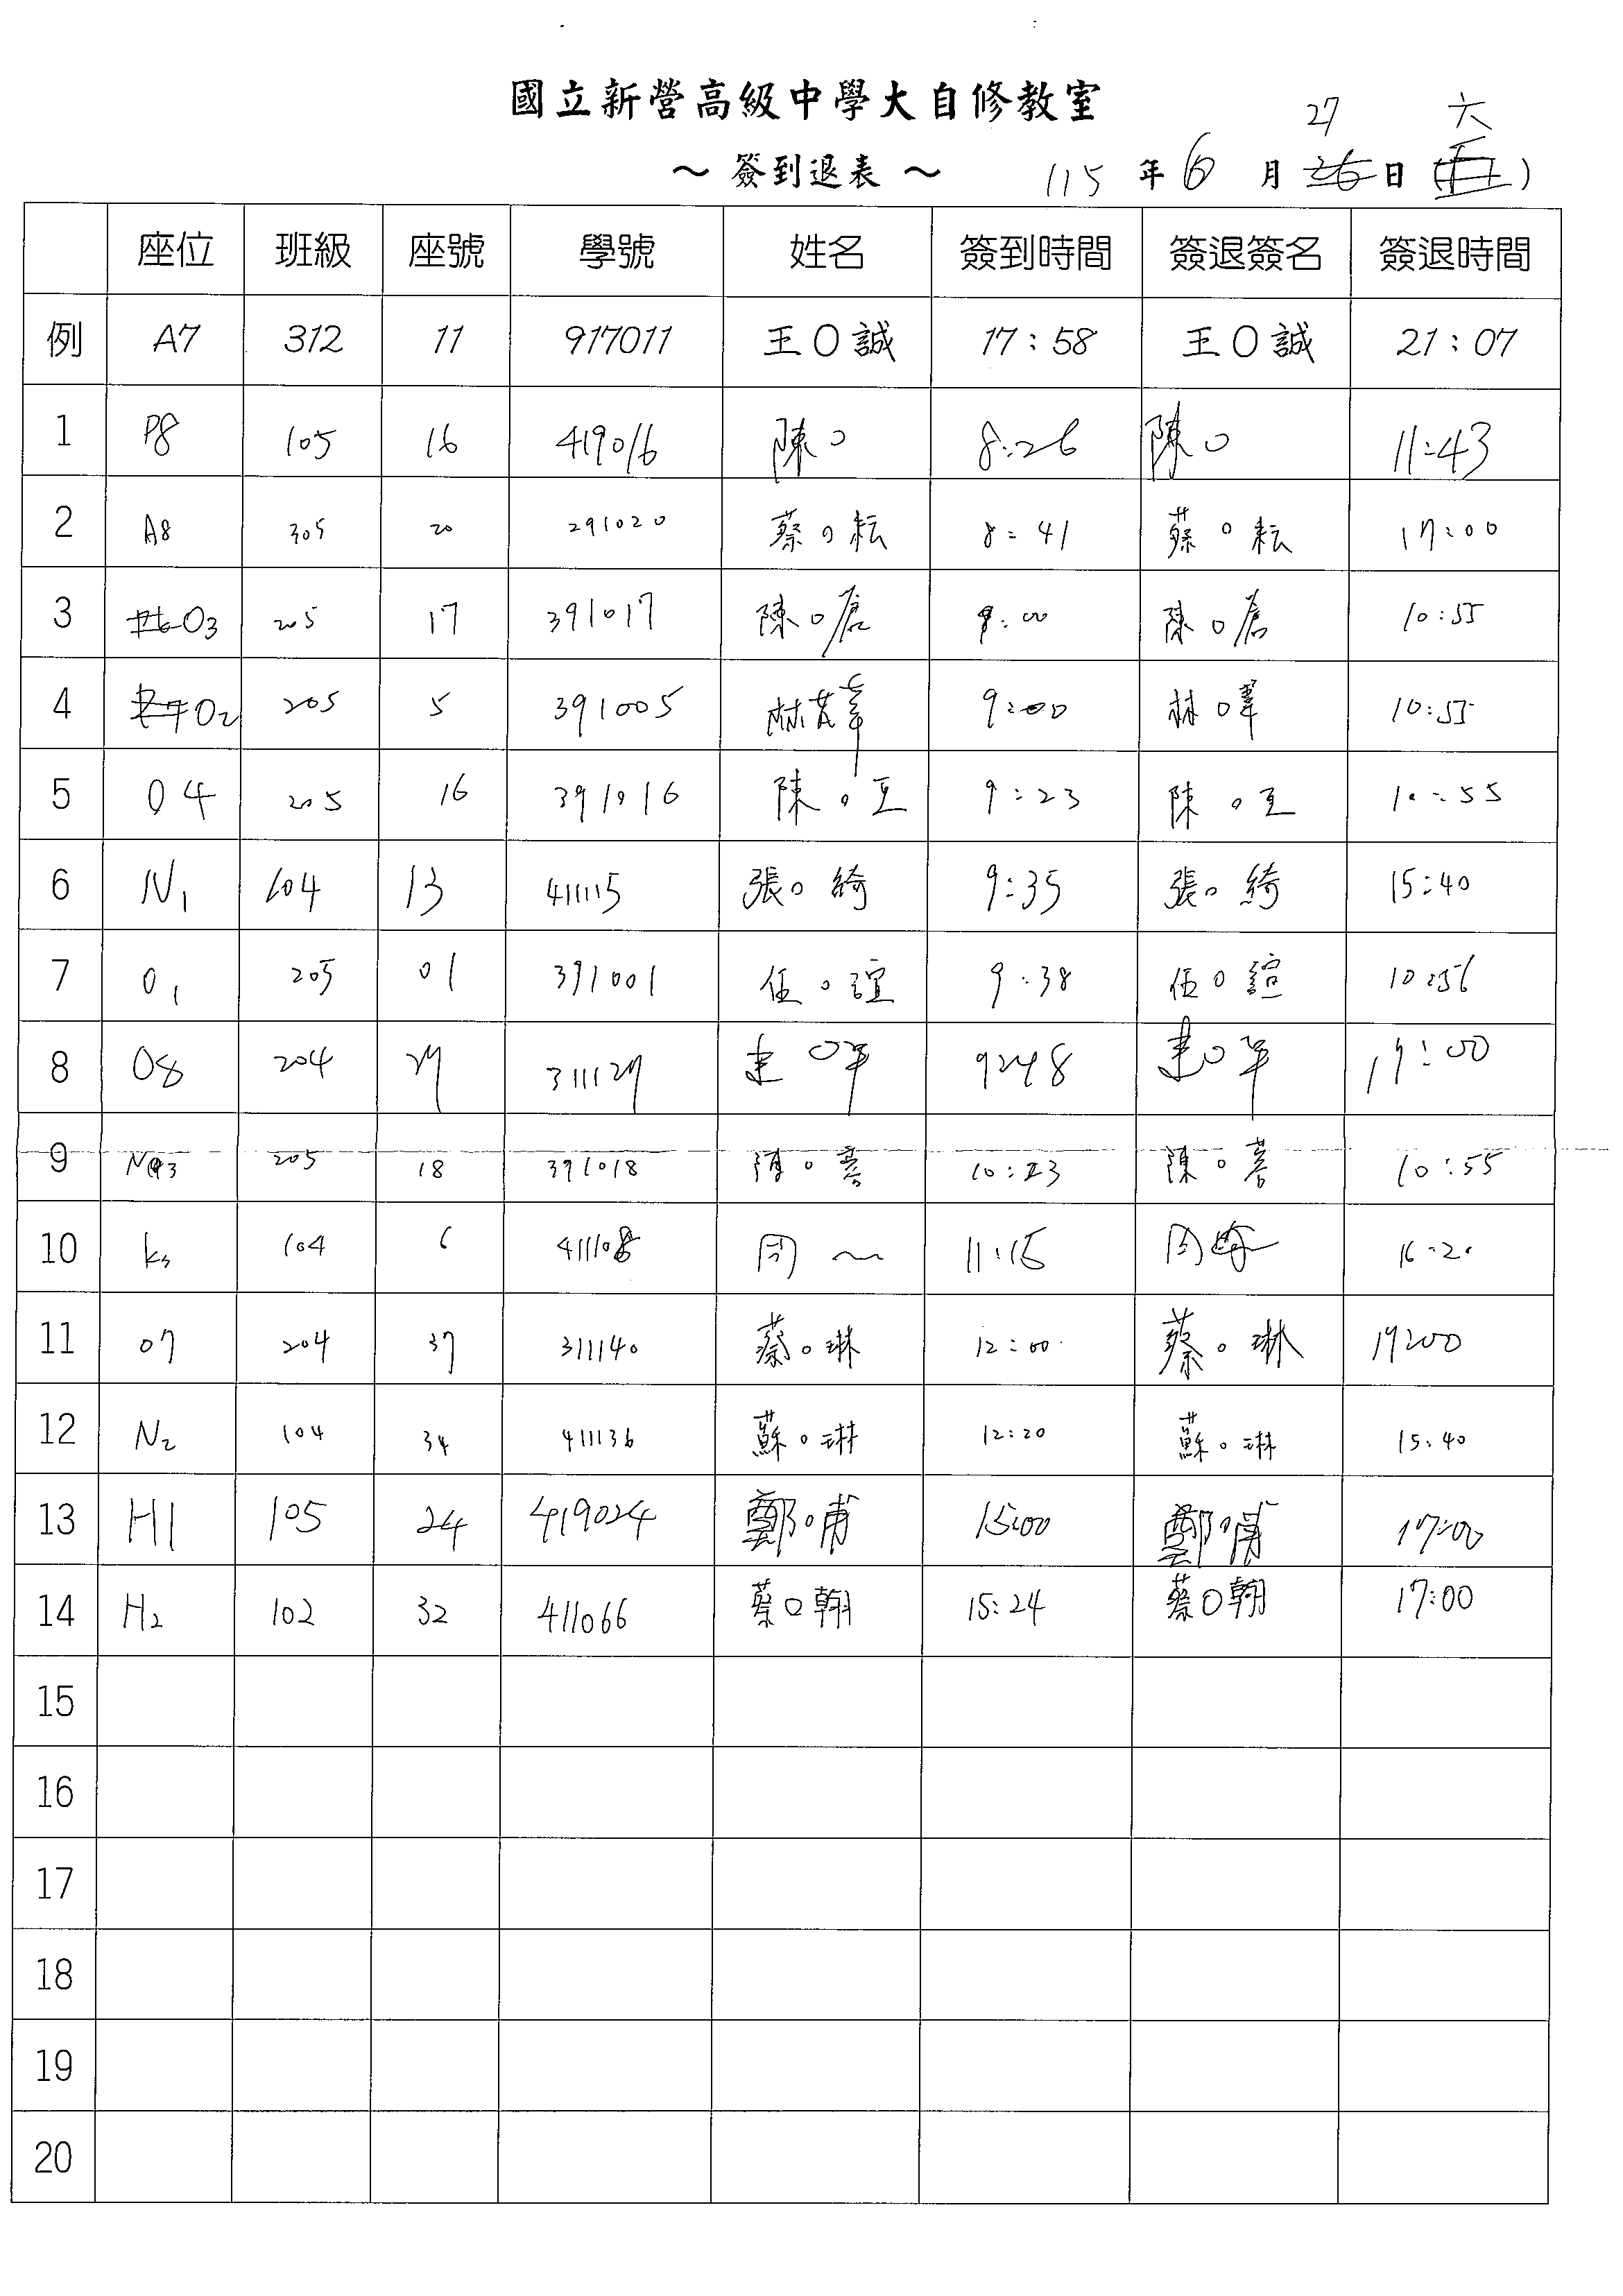 國立新營高級中學大自修教室
27 六
～ 簽到退表 ～ 115 年 6 月 26 日 (五)
座位 班級 座號 學號 姓名 簽到時間 簽退簽名 簽退時間
例 A7 312 11 917011 王O誠 17:58 王O誠 21:07
1 P8 105 16 419016 陳O 8:26 陳O 11:43
2 A8 305 20 291020 蔡O耘 8:41 蔡O耘 17:00
3 O3 205 17 391017 陳O 9:00 陳O 10:55
4 O2 205 5 391005 林 9:00 林O 10:55
5 O4 205 16 391016 陳O亙 9:23 陳O亙 10:55
6 N1 104 13 411115 張O綺 9:35 張O綺 15:40
7 O1 205 01 391001 伍O誼 9:38 伍O誼 10:56
8 O8 204 27 311127 O 9:48 O 17:00
9 N3 205 18 391018 陳O 10:23 陳O 10:55
10 K3 104 6 411108 周 11:15 周 16:20
11 O7 204 37 311140 蔡O琳 12:00 蔡O琳 17:00
12 N2 104 34 411136 蘇O琳 12:20 蘇O琳 15:40
13 H1 105 24 419024 鄭O甫 15:00 鄭O甫 17:00
14 H2 102 32 411066 蔡O翰 15:24 蔡O翰 17:00
15
16
17
18
19
20